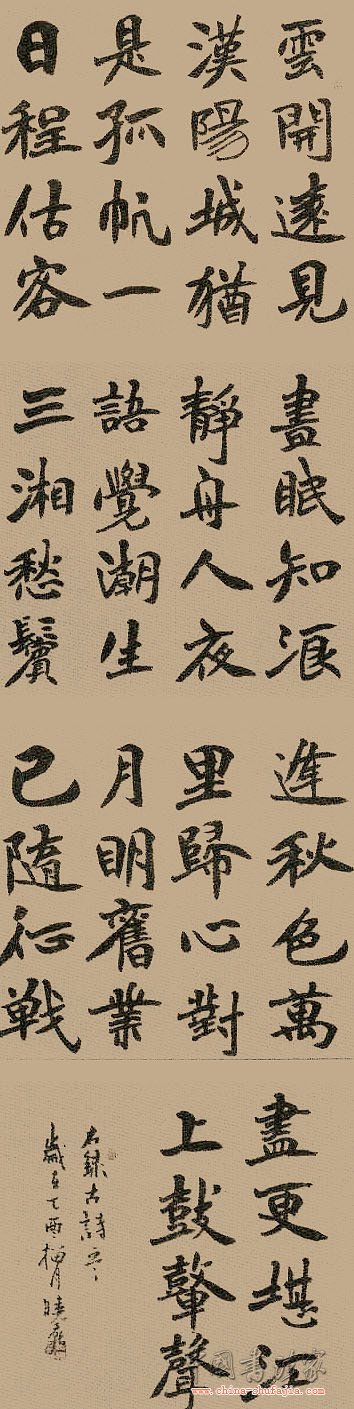 雲開遠見
漢陽城猶
是孤帆一
日程估客
晝眠知浪
靜舟人夜
語覺潮生
三湘愁鬢
逢秋色萬
里歸心對
月明舊業
已隨征戰
盡更堪江
上鼓鼙聲
右錄古詩
歲在丁酉榴月
中國書法家
www.china-shufajia.com